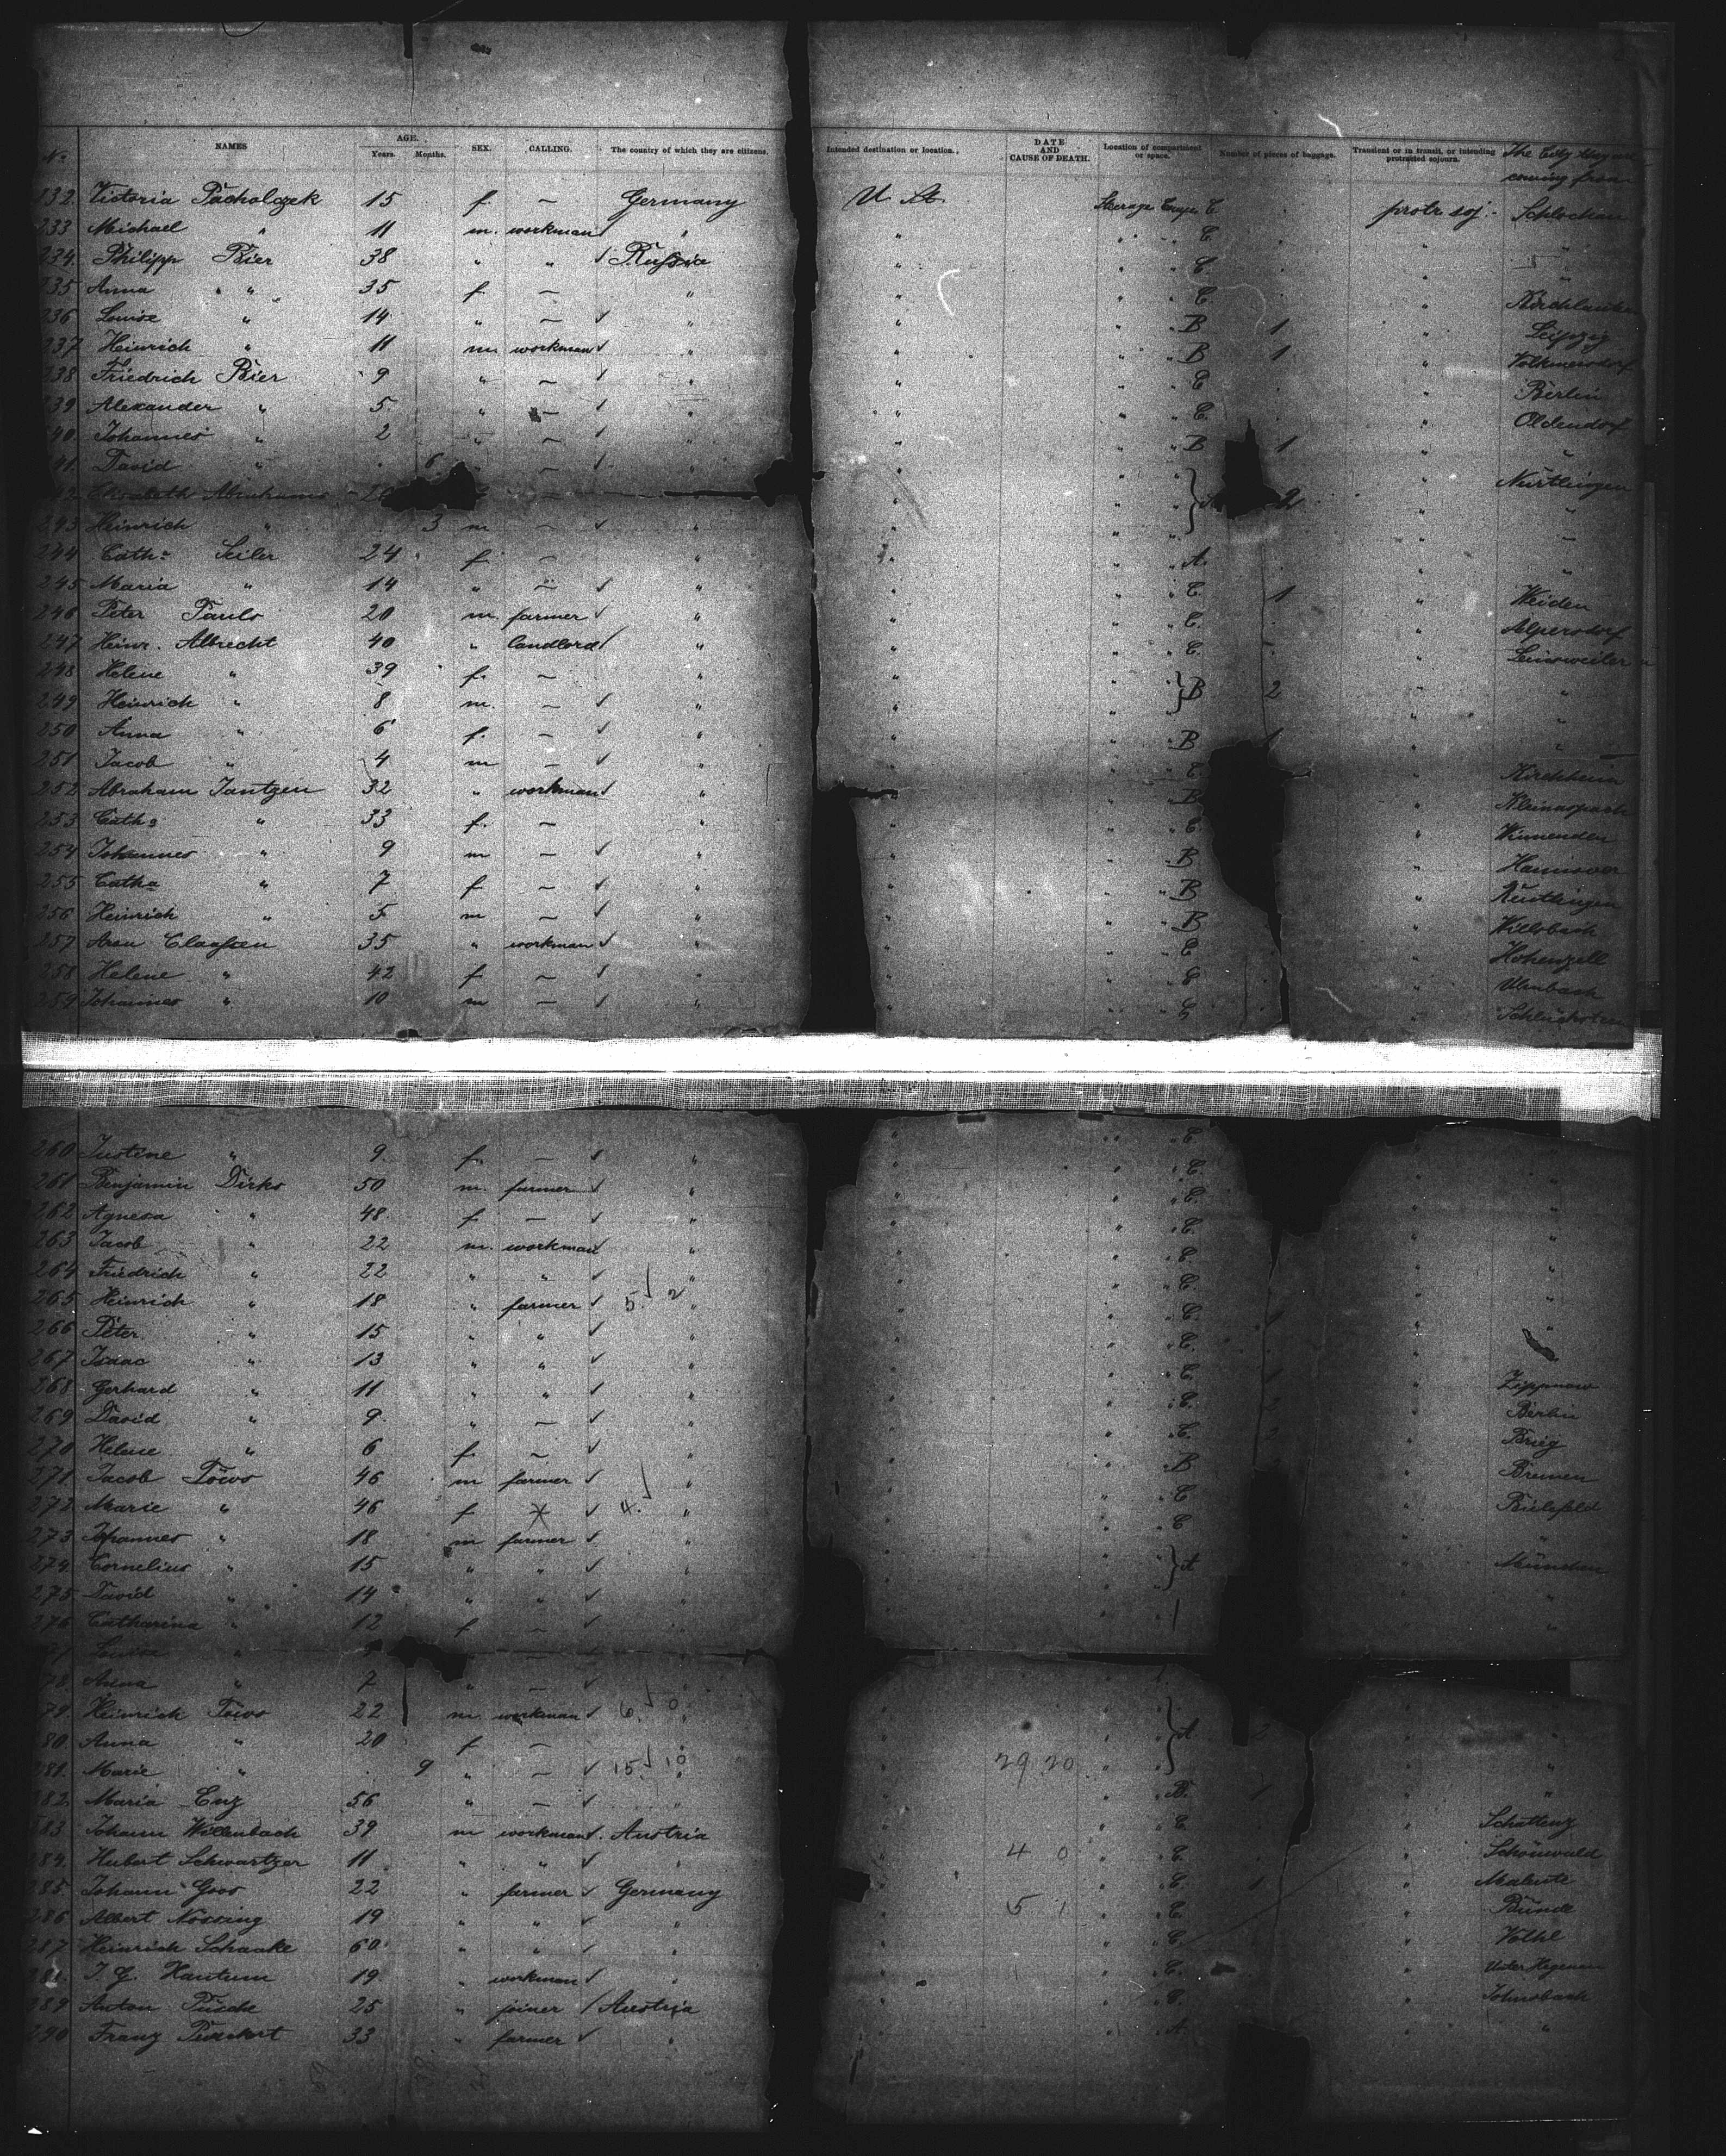 No. NAMES AGE. Years. Months. SEX. CALLING. The country of which they are citizens. Intended destination or location. DATE AND CAUSE OF DEATH. Location of compartment or space. Number of pieces of baggage. Transient or in transit, or intending protracted sojourn. The City they are coming from
232 Victoria Pacholczek 15 f. — Germany U. St. Steerage C protr. soj. Schlochau
233 Michael " 11 m. workman " " C " "
234 Philipp Bier 38 " " Russia " C
235 Anna " 35 f. — " " C "
236 Louise " 14 " — " " B 1 " Leipzig
237 Heinrich " 11 m workman " " B 1 " Volkmersdorf
238 Friedrich Bier 9 " — " " C " Berlin
239 Alexander " 5 " — " " C " Oldendorf
40 Johannes " 2 " — " " B 1 " "
41 David " 6 " — " " Nürtlingen
42 Elisabeth Abrahams
243 Heinrich " 3 m — "
244 Cath. Seiler 24 f. — " " A. "
245 Maria " 14 " — " " C. 1 " Weiden
246 Peter Pauls 20 m. farmer " " C. " Alpersdorf
247 Heinr. Albrecht 40 " landlord " " C. " Leinsweiler
248 Helene " 39 f. — "
249 Heinrich " 8 m. — " " B 2 " "
250 Anna " 6 f. — " " B " "
251 Jacob " 4 m — " " C " Kirchheim
252 Abraham Jantzen 32 " workman " " B " Kleinaspach
253 Cath. " 33 f. — " " C " Winnenden
254 Johannes " 9 m — " " B " Hannover
255 Catha " 7 f — " " B " Reutlingen
256 Heinrich " 5 m — " " B " Willsbach
257 Aron Claassen 35 " workman " " C " Hohenzell
258 Helene " 42 f — " " C " Ulmbach
259 Johannes " 10 m — " " C "
260 Justine " 9 f. — " " C "
261 Benjamin Dirks 50 m. farmer " " C. "
262 Agnesa " 48 f — " " C. "
263 Jacob " 22 m. workman " " C. "
264 Friedrich " 22 " " " C "
265 Heinrich " 18 " farmer 5 2 " " C. "
266 Peter " 15 " " " " C. 1 "
267 Isaac " 13 " " " " C. "
268 Gerhard " 11 " " " " C. 1 " Zippnow
269 David " 9 " — " " C. 2 " Berlin
270 Helene " 6 f — " " C. 2 " Brieg
271 Jacob Töws 46 m farmer " " B " Bremen
272 Marie " 46 f 4 " " C " Bielefeld
273 Johannes " 18 m farmer " " C " "
274 Cornelius " 15 " " " " A " München
275 David " 14 " " " " "
276 Catharina " 12 f — " " "
Luise " —
78 Anna " 7 " — "
79 Heinrich Töws 22 m workman 6 0 " "
80 Anna " 20 f — " A 2 "
281. Marie " 9 " — 15 10 " 29 20 " "
282 Maria Enz 56 " — " " B. 1 " "
283 Johann Willenbach 39 m workman Austria " C " Schattenz
284. Hubert Schwartzer 11 " " " " 4 0 " C. " Schönwald
285. Johann Goos 22 " farmer Germany " C. 1 " Malente
286 Albert Nossing 19 " " " " 5 1 " C " Bünde
287 Heinrich Schaake 60 " " " " C. " Vöhl
J. G. Hantum 19 " workman " " C. "
289 Anton Pusche 25 " joiner Austria " C. " Johnsbach
290 Franz 33 " farmer " " A. " "